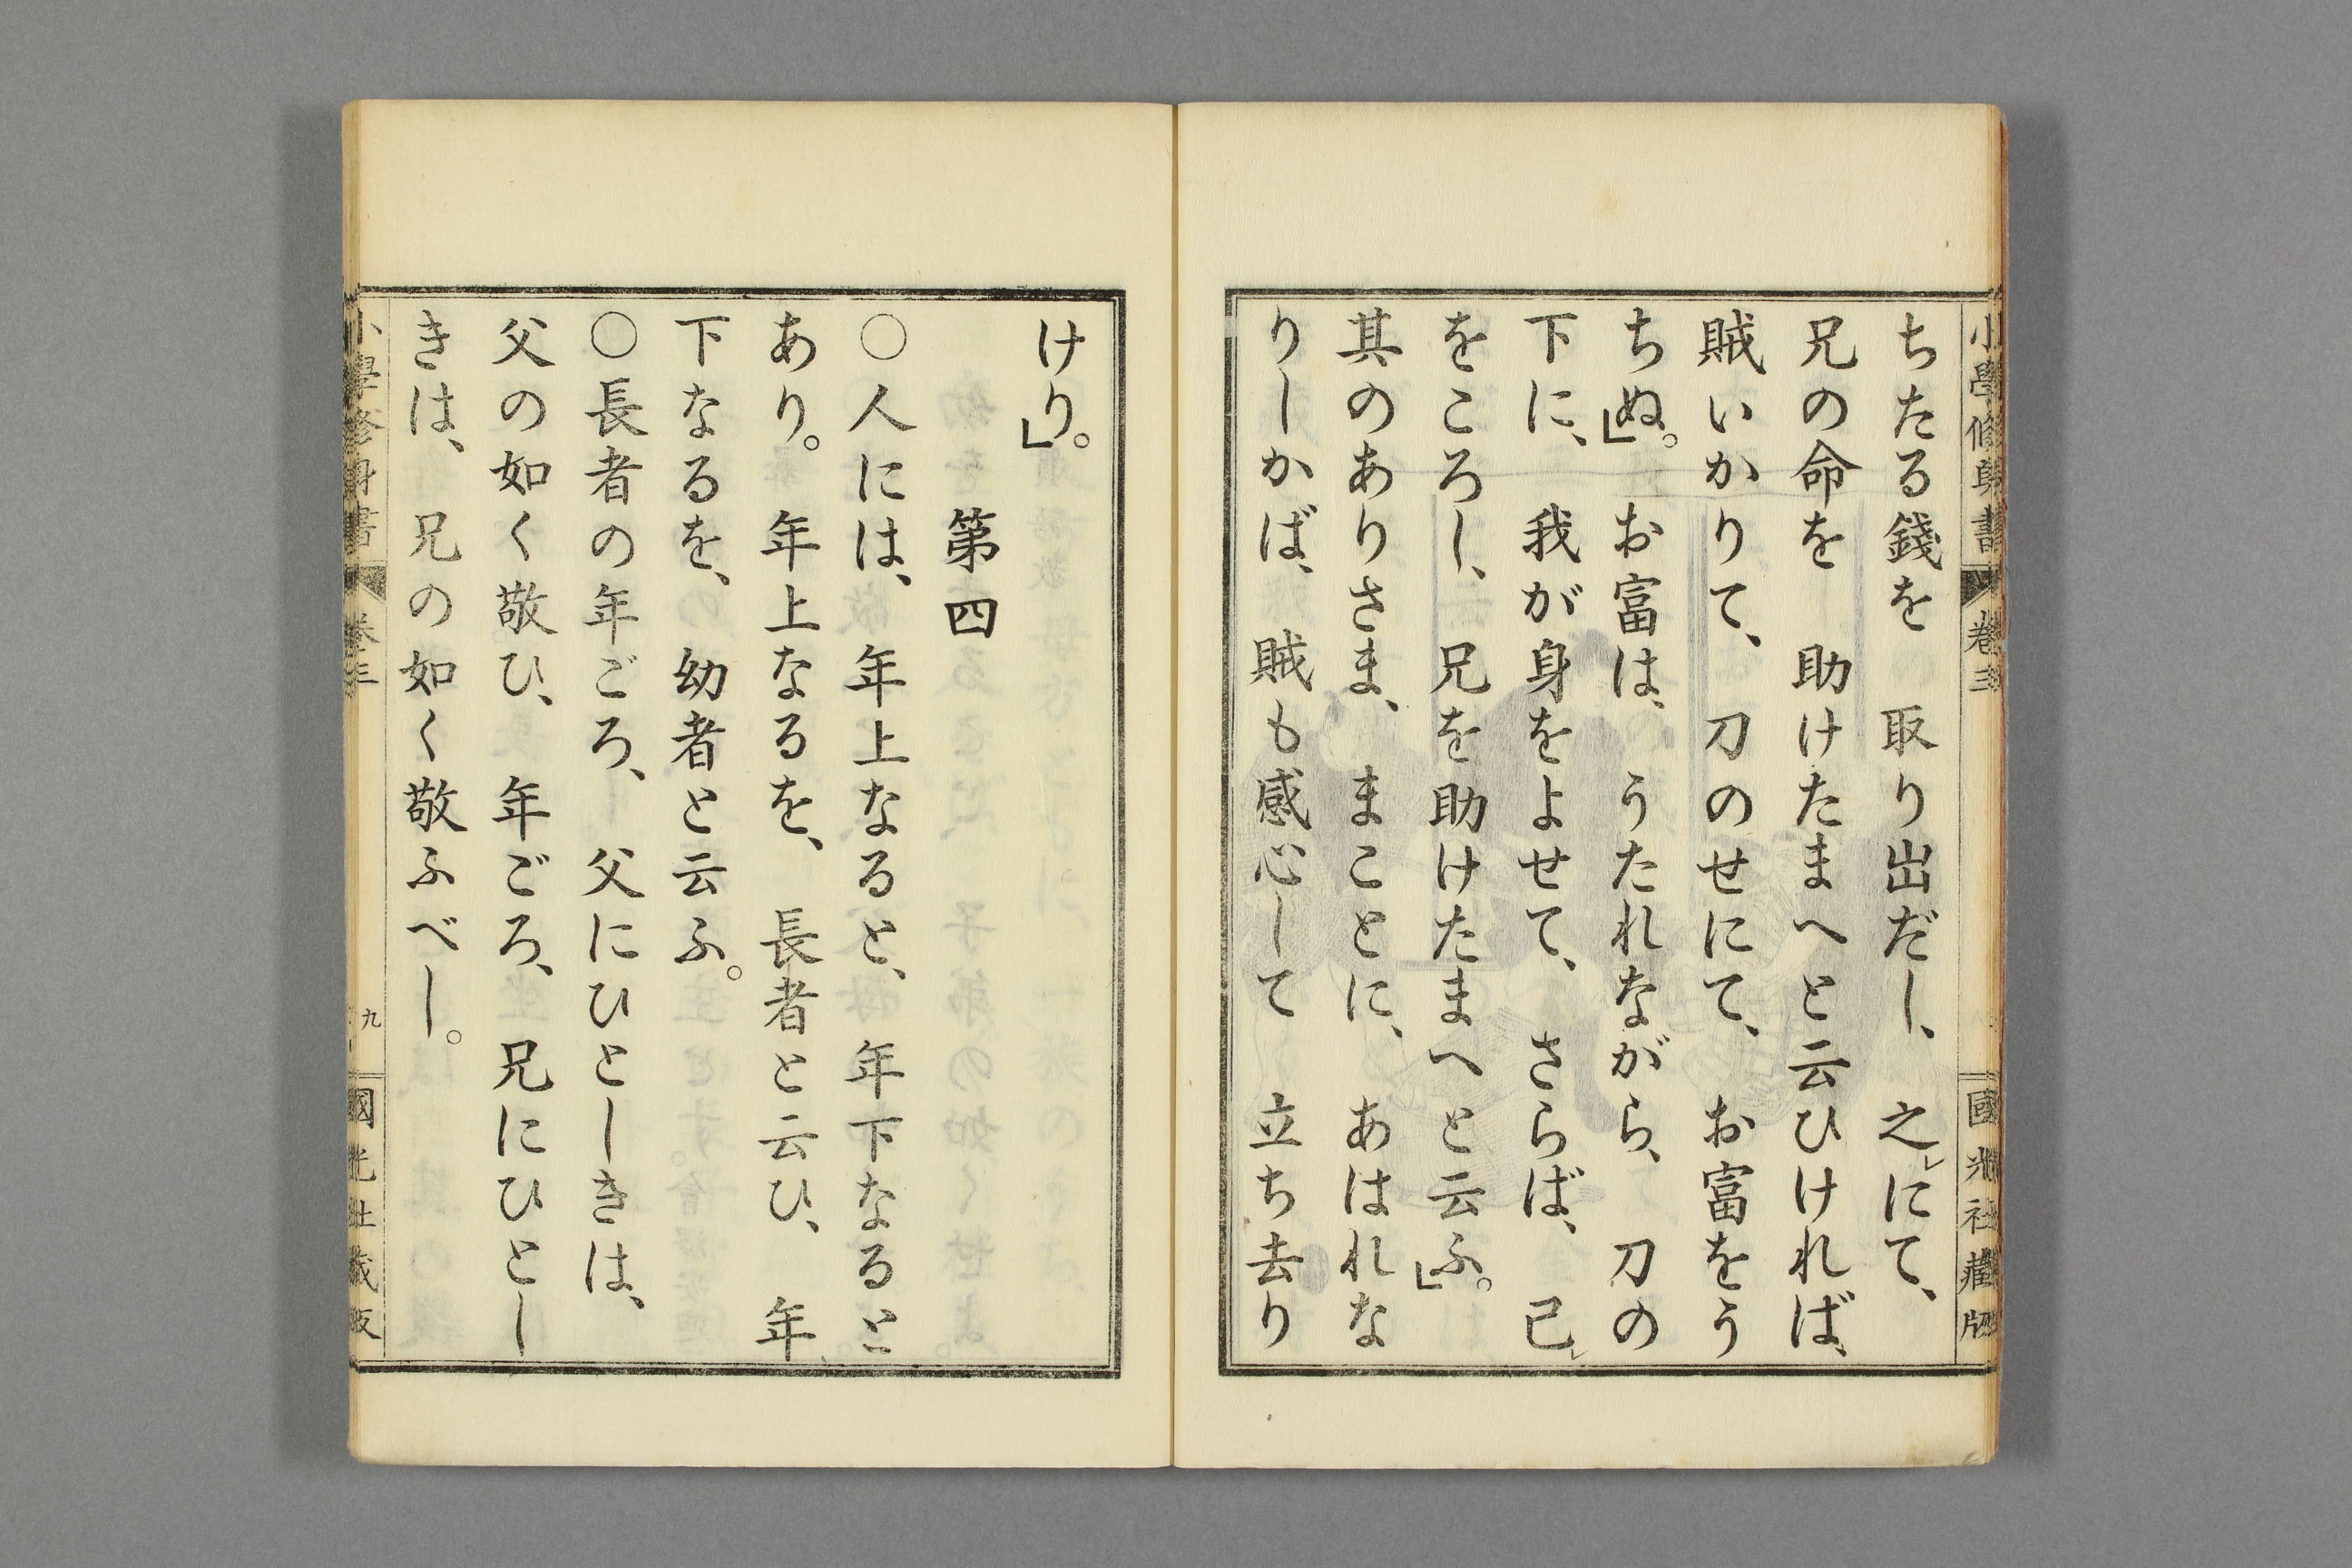 小學修身書 卷三 國光社藏版
ちたる錢を　取り出だし、之にて、
兄の命を　助けたまへと云ひければ、
賊いかりて、　刀のせにて、　お富をう
ちぬ。」　お富は、　うたれながら、　刀の
下に、　我が身をよせて、　さらば、　己
をころし、　兄を助けたまへ　と云ふ。」
其のありさま、　まことに、　あはれな
りしかば、　賊も感心して　立ち去り
けり。」
第四
〇人には、　年上なると、　年下なると
あり。　年上なるを、　長者と云ひ、　年
下なるを、　幼者と云ふ。
〇長者の年ごろ、　父にひとしきは、
父の如く敬ひ、　年ごろ、　兄にひとし
きは、　兄の如く敬ふべし。
小學修身書 卷三 九 國光社藏版